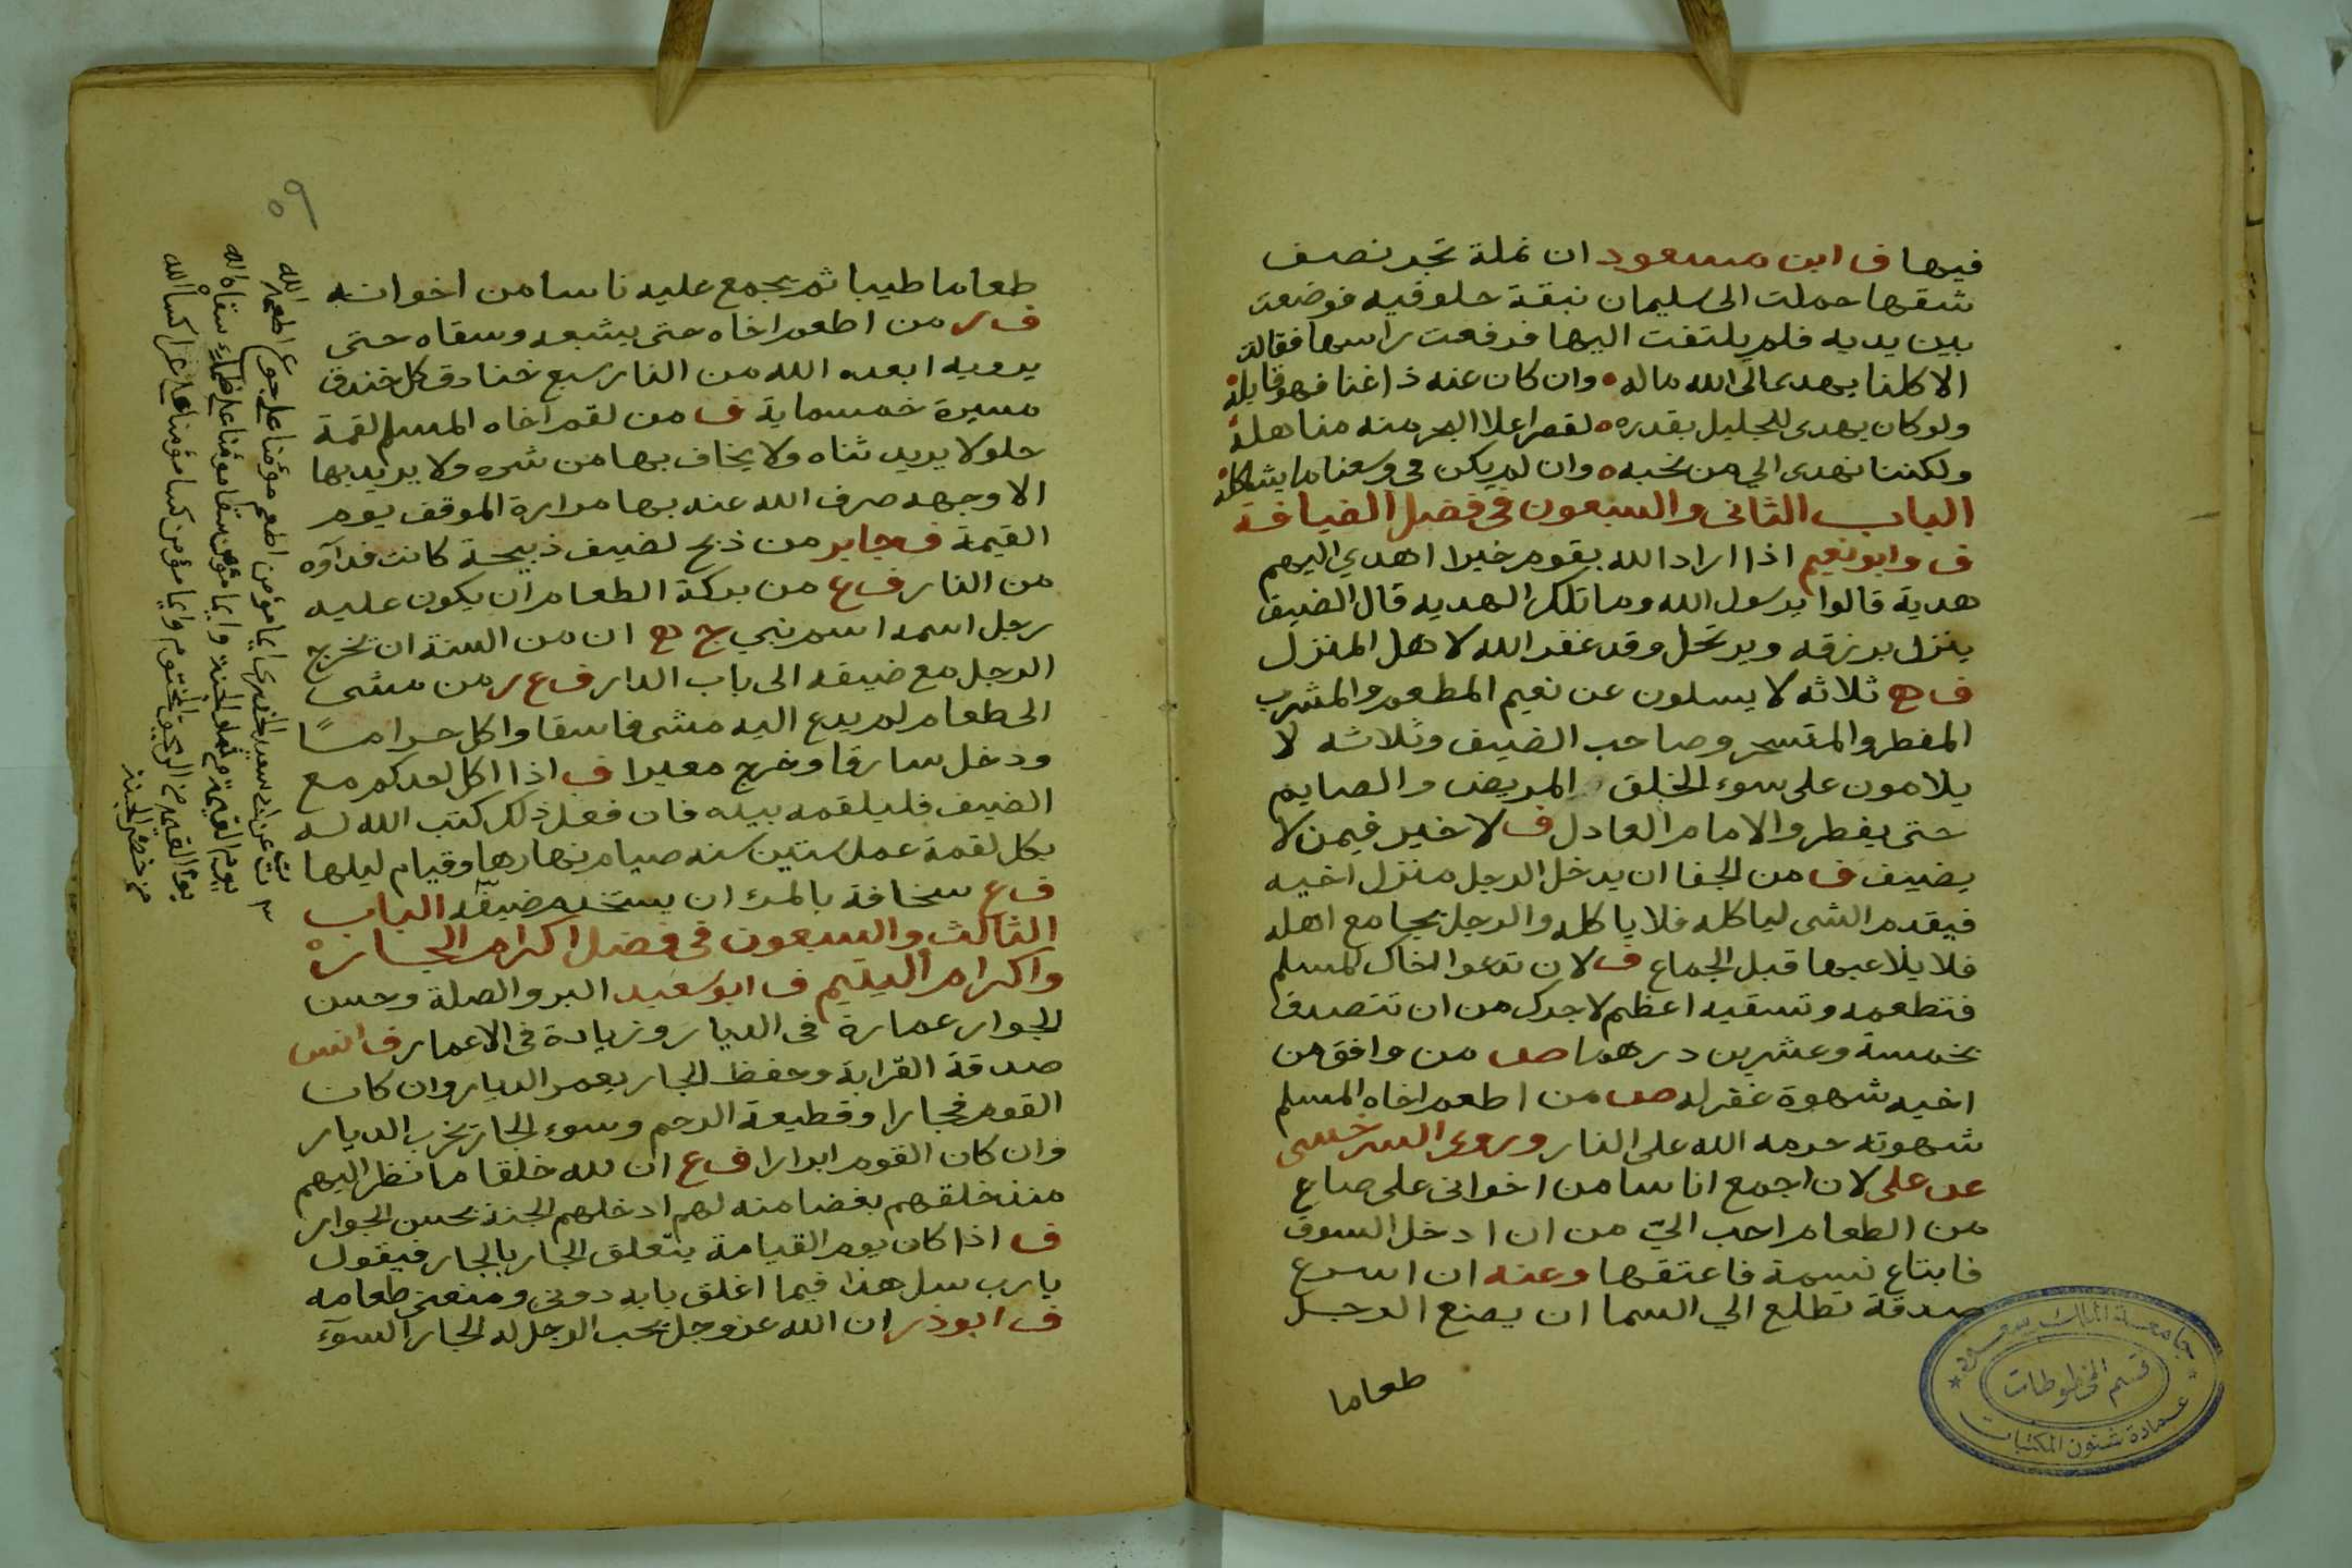 فيها ف ابن مسعود ان نملة تجر نصف
شقها حملت الى سليمان نبقة حلو فيه فوضعت
بين يديه فلم يلتفت اليها فرفعت راسها فقالت
الا كلنا يهدى الى الله ماله وان كان عنه ذا غنا فهو قابله
ولو كان يهدى للجليل بقدره لقصر اعلا البحر منه مناهله
ولكننا نهدى الي من نحبه وان لم يكن في وسعنا ما يشاكله
الباب الثانى والسبعون في فضل الضيافة
ف وابو نعيم اذا اراد الله بقوم خيرا اهدي اليهم
هدية قالوا يرسول الله وما تلك الهديه قال الضيف
ينزل برزقه ويرتحل وقد غفر الله لاهل المنزل
ف ثلاثه لا يسلون عن نعيم المطعم والمشرب
المفطر والمتسحر وصاحب الضيف وثلاثه لا
يلامون على سوء الخلق المريض والصايم
حتى يفطر والامام العادل ف لا خير فيمن لا
يضيف ف من الجفا ان يدخل الرجل منزل اخيه
فيقدم الشى لياكله فلا ياكله والرجل يجامع اهله
فلا يلاعبها قبل الجماع ف لان تدعوا اخاك لمسلم
فتطعمه وتسقيه اعظم لاجرك من ان تتصدق
بخمسة وعشرين درهما ص من وافق من
اخيه شهوة غفر له ص من اطعم اخاه المسلم
شهوته حرمه الله على النار وروى السرخسى
عن على لان اجمع اناسا من اخوانى على صاع
من الطعام احب اليّ من ان ادخل السوق
فابتاع نسمة فاعتقها وعنه ان اسرع
صدقة تطلع الي السما ان يصنع الرجل
طعاما
جامعة الملك سعود
قسم المخطوطات
عمادة شئون المكتبات
٥٩
طعاما طيبا ثم يجمع عليه ناسا من اخوانه
ف ر من اطعم اخاه حتى يشبعه وسقاه حتى
يرويه ابعده الله من النار سبع خنادق كل خندق
مسيرة خمسماية ف من لقم اخاه المسلم لقمة
حلو لا يريد ثناه ولا يخاف بها من شره ولا يريد بها
الا وجهه صرف الله عنه بها مرارة الموقف يوم
القيمة ف جابر من ذبح لضيف ذبيحة كانت فداؤه
من النار ف ع من بركة الطعام ان يكون عليه
رجل اسمه اسم نبي ان من السنة ان يخرج
الرجل مع ضيفه الى باب الدار ف ع ر من مشى
الى طعام لم يدع اليه مشى فاسقا واكل حراما
ودخل سارقا وخرج معيرا ف اذا اكل احدكم مع
الضيف فليلقمه بيده فان فعل ذلك كتب الله له
بكل لقمة عمل ستين سنه صيام نهارها وقيام ليلها
ف ع سخافة بالمرء ان يستخدم ضيفه الباب
الثالث والسبعون في فضل اكرام الجاره
واكرام اليتيم ف ابو سعيد البر والصلة وحسن
الجوار عمارة في الديار وزيادة في الاعمار ف انس
صدقة القرابة وحفظ الجار يعمر الديار وان كان
القوم فجارا وقطيعة الرحم وسوء الجار يخرب الديار
وان كان القوم ابرارا ف ع ان لله خلقا ما نظر اليهم
منذ خلقهم بغضا منه لهم ادخلهم الجنة بحسن الجوار
ف اذا كان يوم القيامة يتعلق الجار بالجار فيقول
يارب سل هذا فيما اغلق بابه دونى ومنعنى طعامه
ف ابو ذر ان الله عز وجل يحب الرجل له الجار السوء
ت عن ابى سعيد الخدرى ايما مؤمن اطعم مؤمنا على جوع اطعمه الله
يوم القيمة من ثمار الجنة وايما مؤمن سقا مؤمنا على ظماء سقاه الله
يوم القيمة من الرحيق المختوم وايما مؤمن كسا مؤمنا على عرا كساه الله
من خضر الجنة